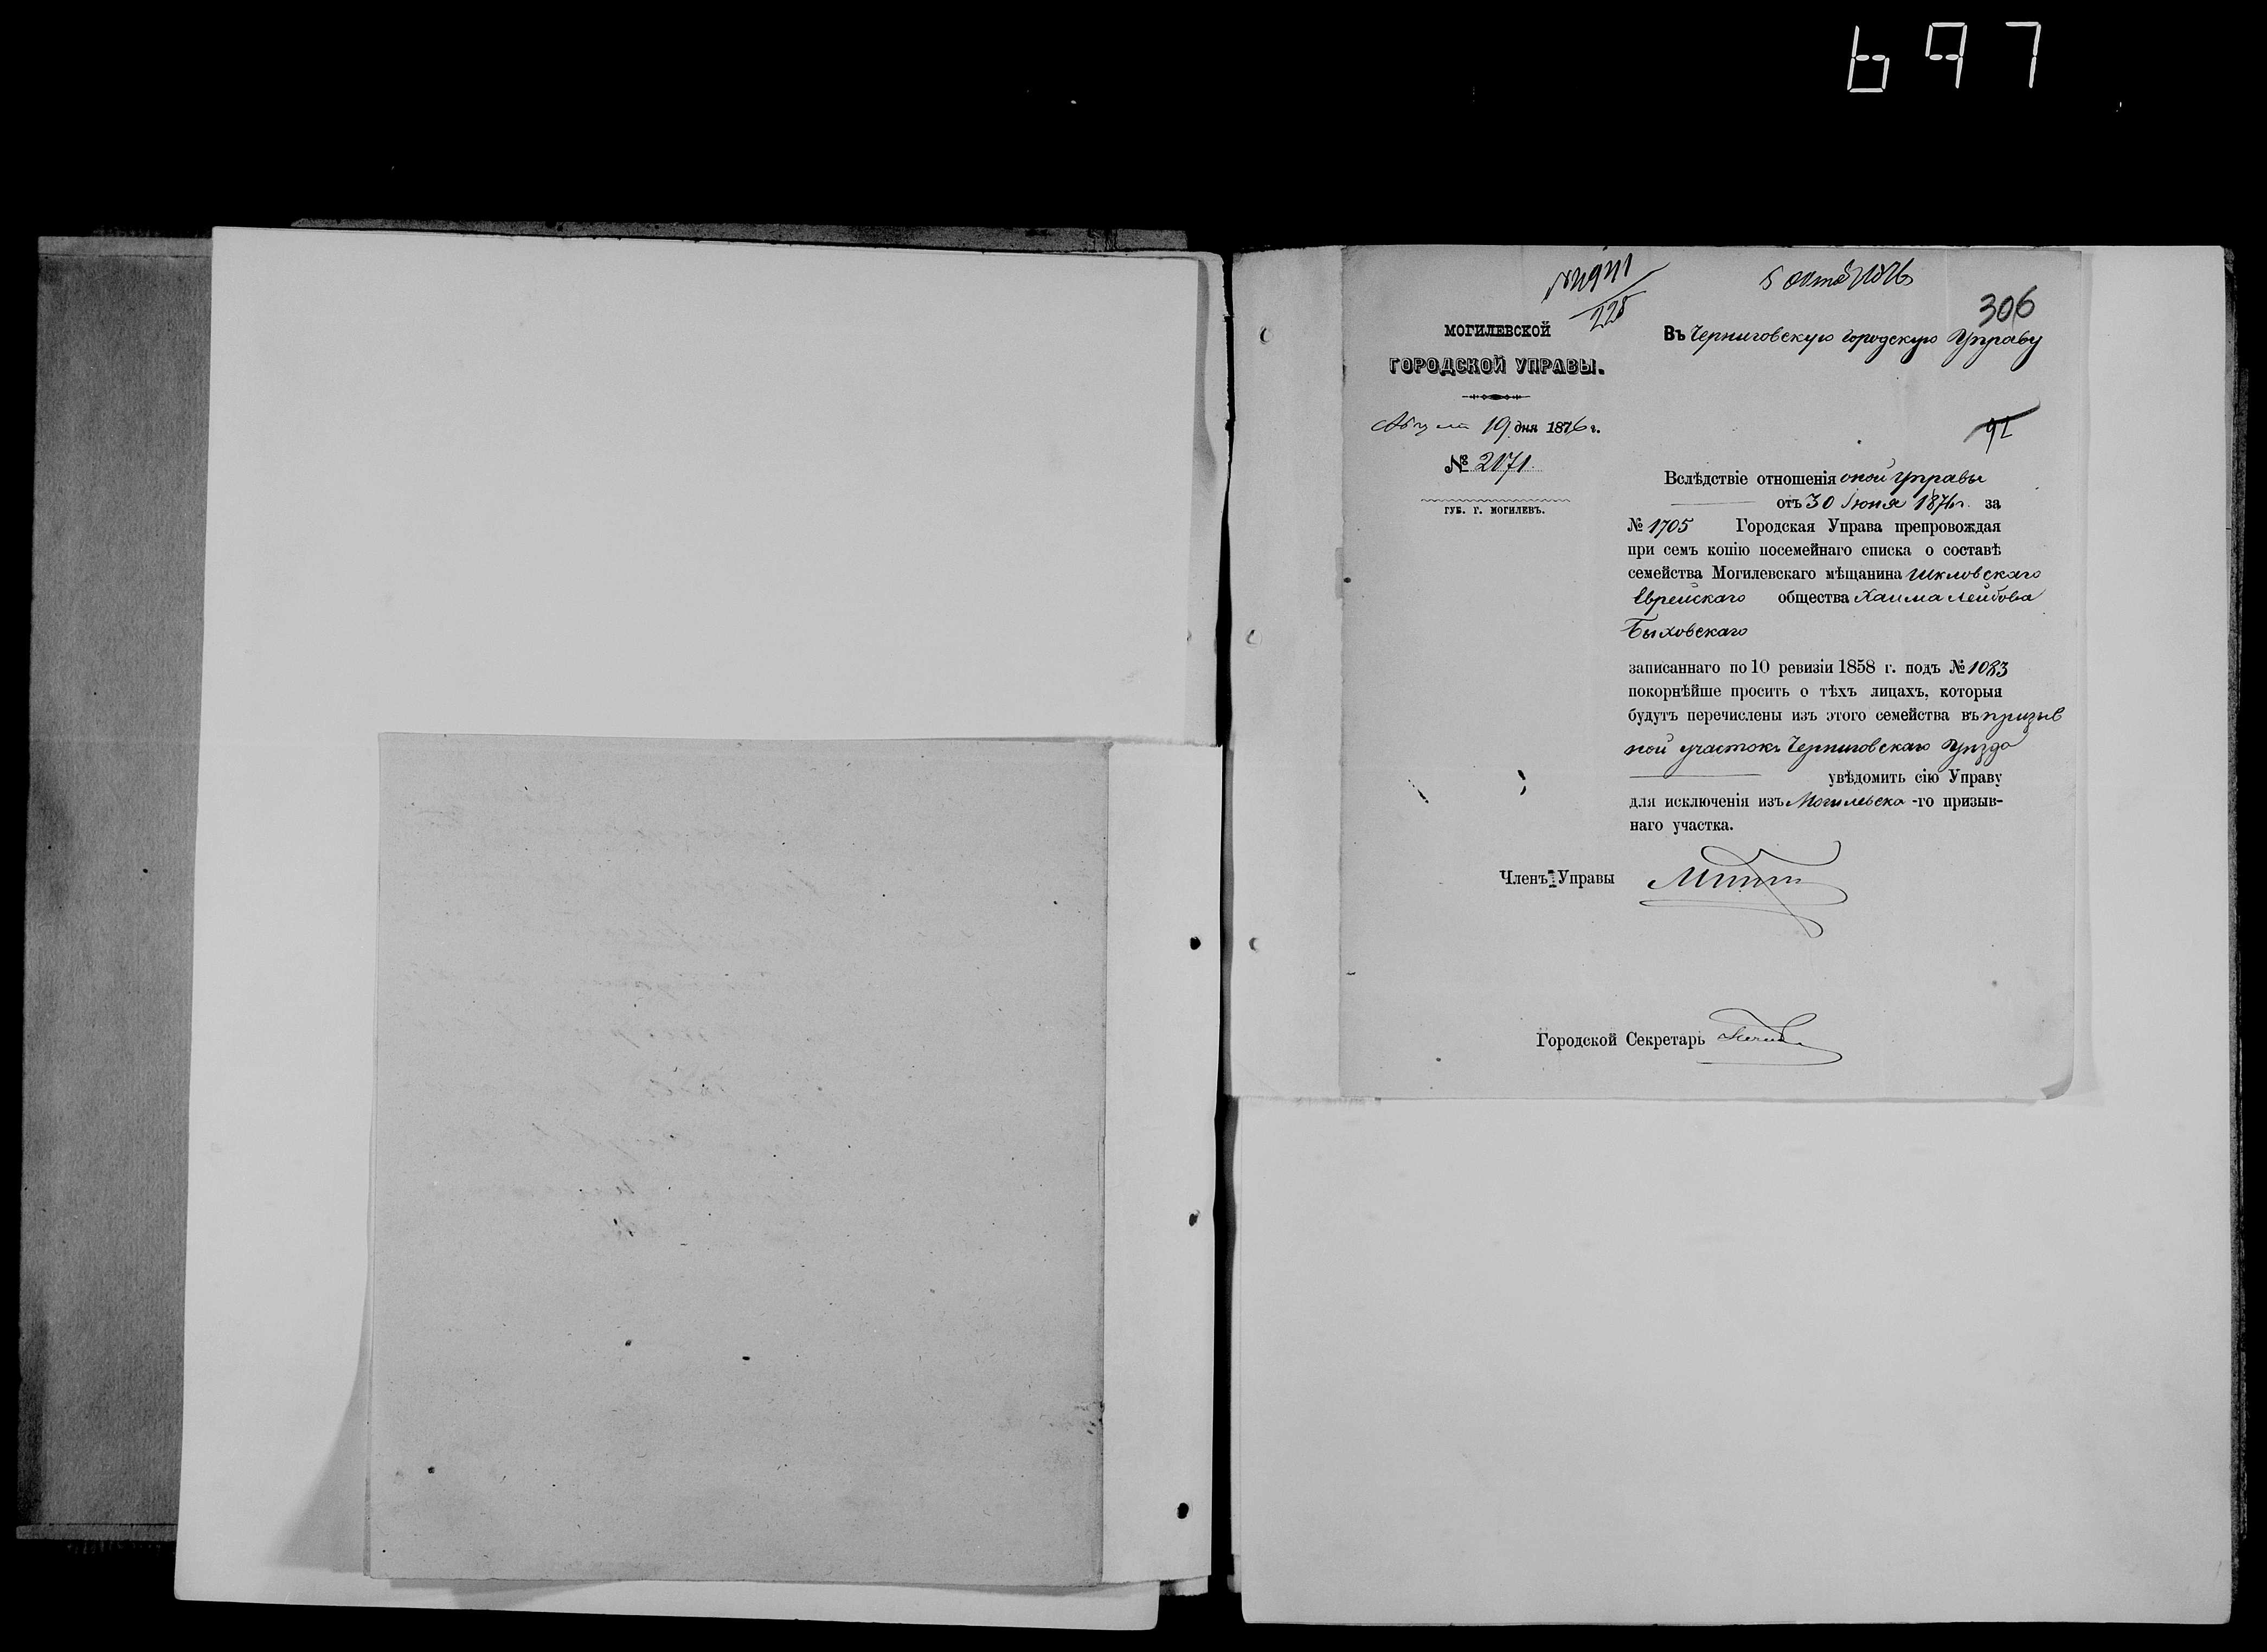 697
5 Октяб 1876
306
МОГИЛЕВСКОЙ
ГОРОДСКОЙ УПРАВЫ.
Августа 19 дня 1876 г.
№ 2171.
ГУБ. Г. МОГИЛЕВЪ.
Въ Черниговскую Городскую Управу
91
Вслѣдствіе отношенія оной Управы
отъ 30 Іюня 1876 г. за
№ 1705 Городская Управа препровождая
при семъ копію посемейнаго списка о составѣ
семейства Могилевскаго мѣщанина Шкловскаго
Еврейскаго общества Хаима Лейбова
Быховскаго
записаннаго по 10 ревизіи 1858 г. подъ № 1083
покорнѣйше просить о тѣхъ лицахъ, которыя
будутъ перечислены изъ этого семейства въ призыв
ной участокъ Черниговскаго Уѣзда
увѣдомить сію Управу
для исключенія изъ Могилевска -го призыв-
наго участка.
Членъ Управы
Городской Секретарь